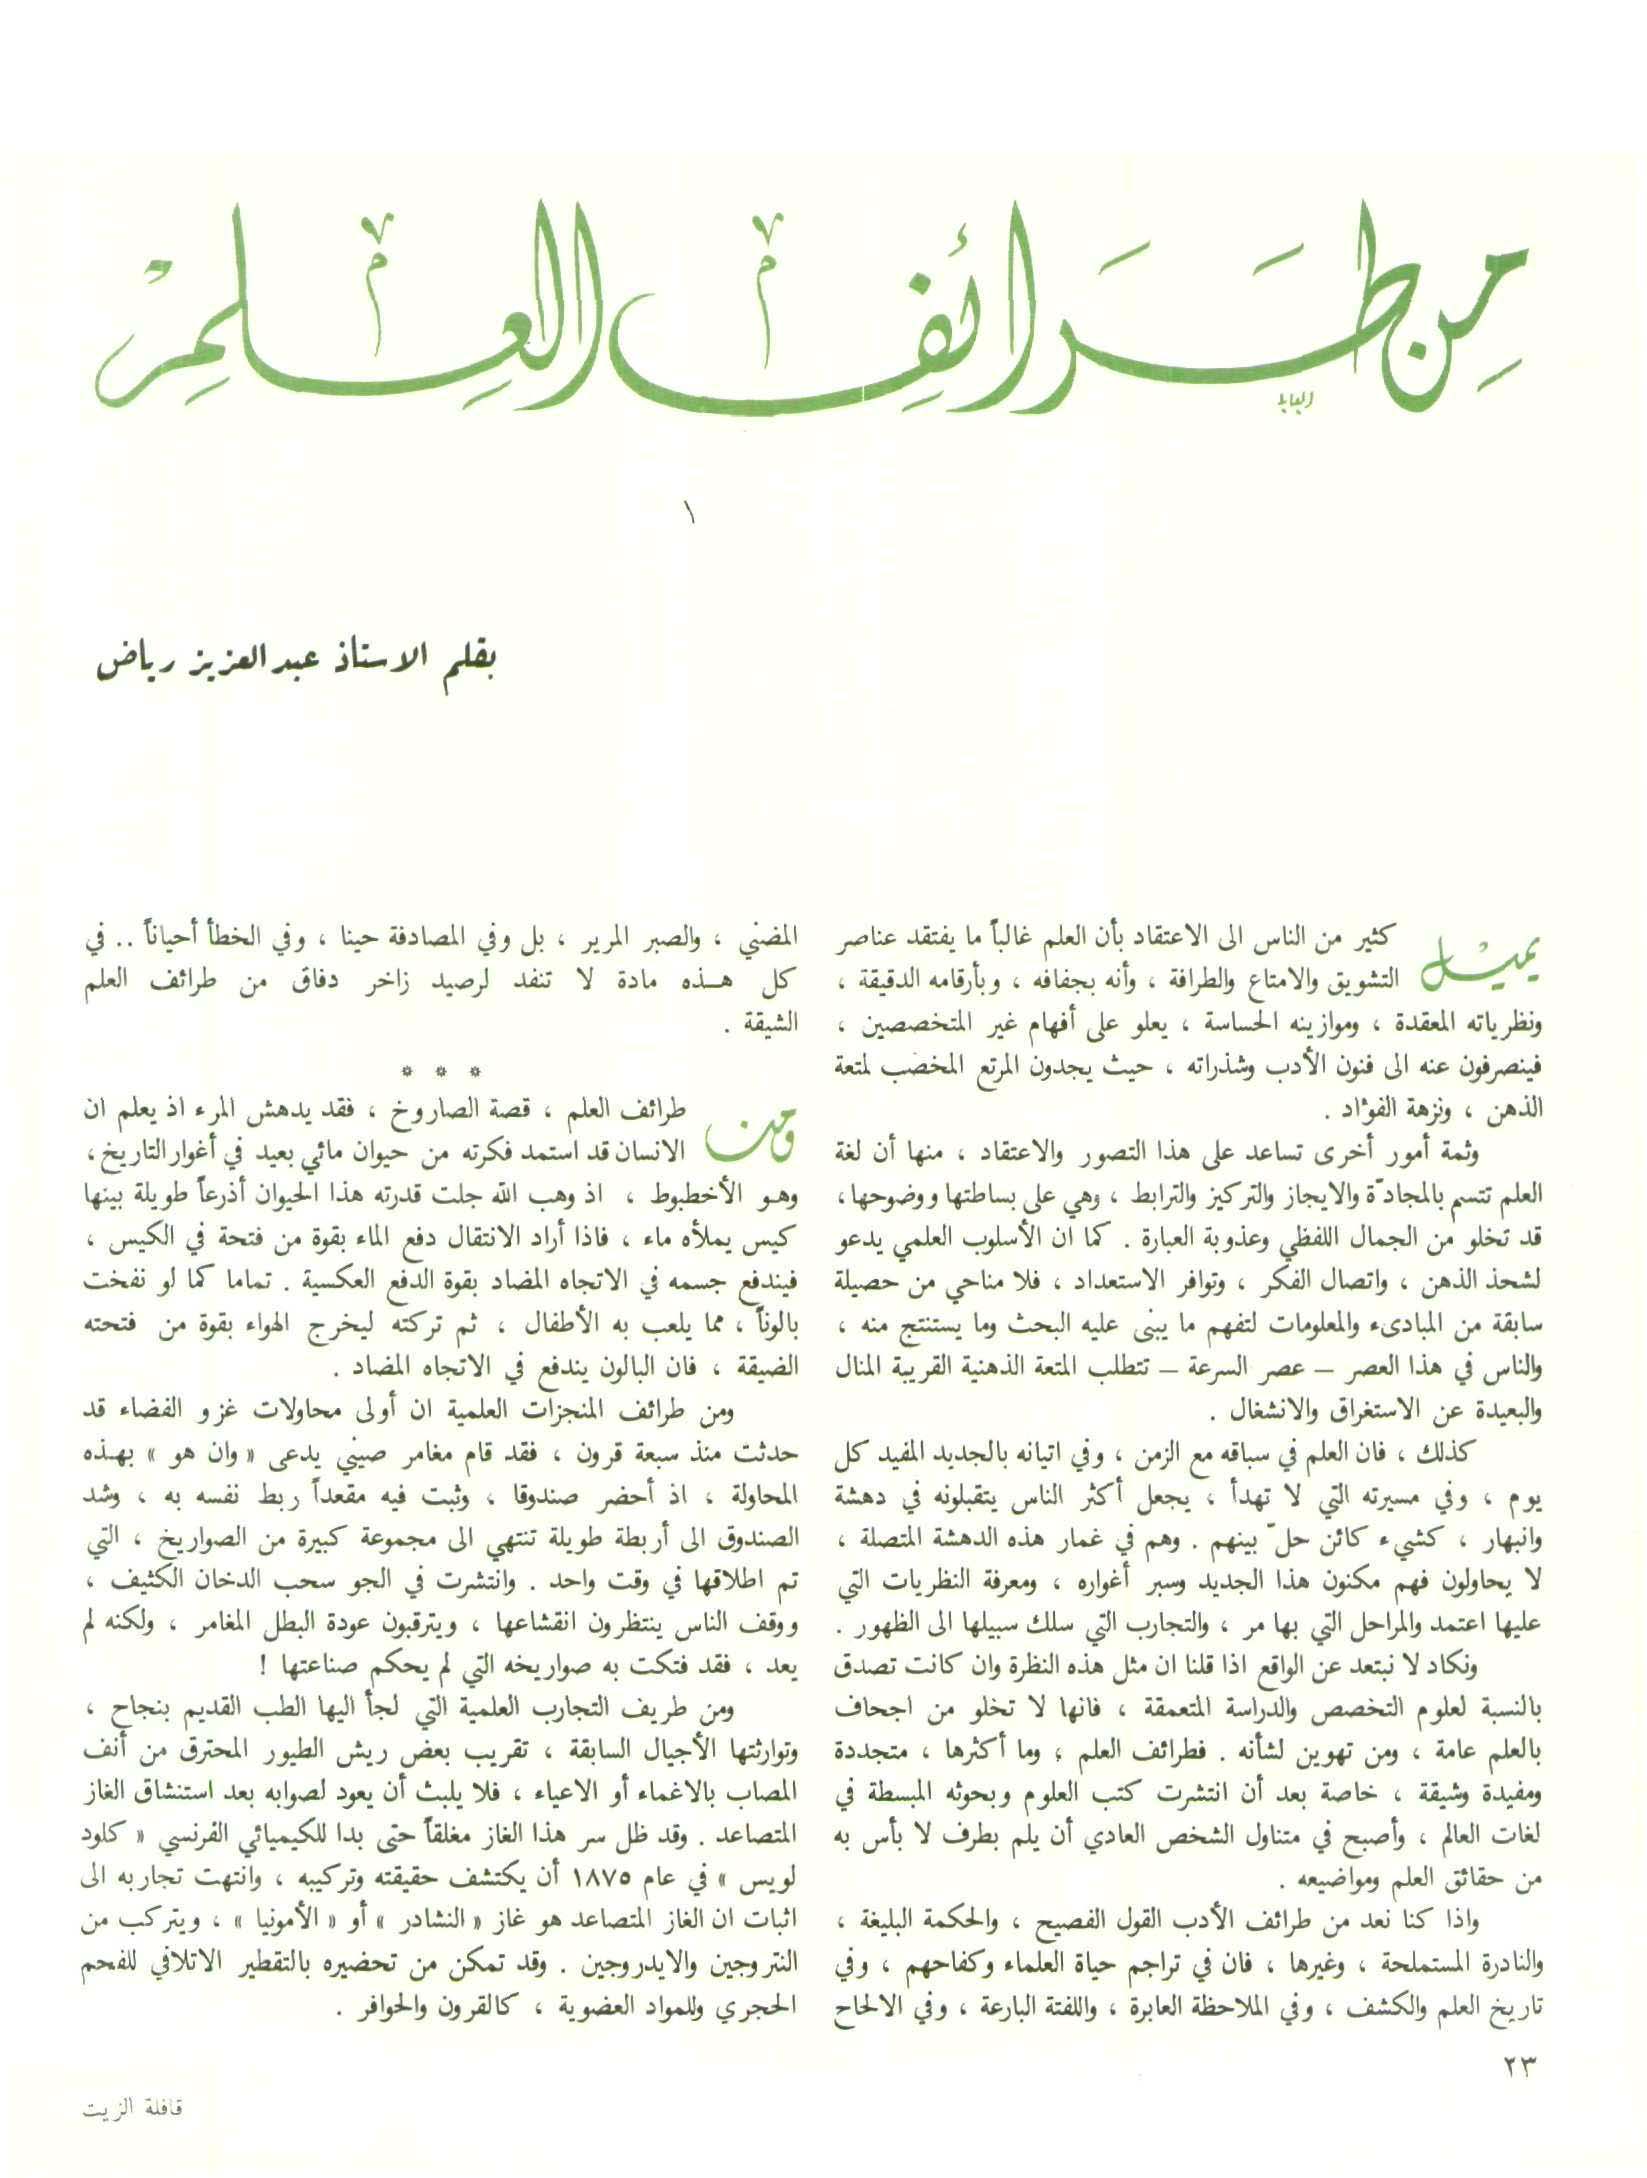 من طرائف العلم
١
بقلم الاستاذ عبد العزيز رياض
يميل كثير من الناس الى الاعتقاد بأن العلم غالباً ما يفتقد عناصر
التشويق والامتاع والطرافة ، وأنه بجفافه ، وبأرقامه الدقيقة ،
ونظرياته المعقدة ، وموازينه الحساسة ، يعلو على أفهام غير المتخصصين ،
فينصرفون عنه الى فنون الأدب وشذراته ، حيث يجدون المرتع المخصب لمتعة
الذهن ، ونزهة الفؤاد .
وثمة أمور أخرى تساعد على هذا التصور والاعتقاد ، منها أن لغة
العلم تتسم بالمجادّة والايجاز والتركيز والترابط ، وهي على بساطتها ووضوحها ،
قد تخلو من الجمال اللفظي وعذوبة العبارة . كما ان الأسلوب العلمي يدعو
لشحذ الذهن ، واتصال الفكر ، وتوافر الاستعداد ، فلا مناحي من حصيلة
سابقة من المبادىء والمعلومات لتفهم ما يبنى عليه البحث وما يستنتج منه ،
والناس في هذا العصر – عصر السرعة – تتطلب المتعة الذهنية القريبة المنال
والبعيدة عن الاستغراق والانشغال .
كذلك ، فان العلم في سباقه مع الزمن ، وفي اتيانه بالجديد المفيد كل
يوم ، وفي مسيرته التي لا تهدأ ، يجعل أكثر الناس يتقبلونه في دهشة
وانبهار ، كشيء كائن حلّ بينهم . وهم في غمار هذه الدهشة المتصلة ،
لا يحاولون فهم مكنون هذا الجديد وسبر أغواره ، ومعرفة النظريات التي
عليها اعتمد والمراحل التي بها مر ، والتجارب التي سلك سبيلها الى الظهور .
ونكاد لا نبتعد عن الواقع اذا قلنا ان مثل هذه النظرة وان كانت تصدق
بالنسبة لعلوم التخصص والدراسة المتعمقة ، فانها لا تخلو من اجحاف
بالعلم عامة ، ومن تهوين لشأنه . فطرائف العلم ؛ وما أكثرها ، متجددة
ومفيدة وشيقة ، خاصة بعد أن انتشرت كتب العلوم وبحوثه المبسطة في
لغات العالم ، وأصبح في متناول الشخص العادي أن يلم بطرف لا بأس به
من حقائق العلم ومواضيعه .
واذا كنا نعد من طرائف الأدب القول الفصيح ، والحكمة البليغة ،
والنادرة المستملحة ، وغيرها ، فان في تراجم حياة العلماء وكفاحهم ، وفي
تاريخ العلم والكشف ، وفي الملاحظة العابرة ، واللفتة البارعة ، وفي الالحاح
المضني ، والصبر المرير ، بل وفي المصادفة حينا ، وفي الخطأ أحياناً .. في
كل هذه مادة لا تنفد لرصيد زاخر دفاق من طرائف العلم
الشيقة .
* * *
ومن طرائف العلم ، قصة الصاروخ ، فقد يدهش المرء اذ يعلم ان
الانسان قد استمد فكرته من حيوان مائي بعيد في أغوار التاريخ ،
وهو الأخطبوط ، اذ وهب الله جلت قدرته هذا الحيوان أذرعاً طويلة بينها
كيس يملأه ماء ، فاذا أراد الانتقال دفع الماء بقوة من فتحة في الكيس ،
فيندفع جسمه في الاتجاه المضاد بقوة الدفع العكسية . تماما كما لو نفخت
بالوناً ، مما يلعب به الأطفال ، ثم تركته ليخرج الهواء بقوة من فتحته
الضيقة ، فان البالون يندفع في الاتجاه المضاد .
ومن طرائف المنجزات العلمية ان أولى محاولات غزو الفضاء قد
حدثت منذ سبعة قرون ، فقد قام مغامر صيني يدعى « وان هو » بهذه
المحاولة ، اذ أحضر صندوقا ، وثبت فيه مقعداً ربط نفسه به ، وشد
الصندوق الى أربطة طويلة تنتهي الى مجموعة كبيرة من الصواريخ ، التي
تم اطلاقها في وقت واحد . وانتشرت في الجو سحب الدخان الكثيف ،
ووقف الناس ينتظرون انقشاعها ، ويترقبون عودة البطل المغامر ، ولكنه لم
يعد ، فقد فتكت به صواريخه التي لم يحكم صناعتها !
ومن طريف التجارب العلمية التي لجأ اليها الطب القديم بنجاح ،
وتوارثتها الأجيال السابقة ، تقريب بعض ريش الطيور المحترق من أنف
المصاب بالاغماء أو الاعياء ، فلا يلبث أن يعود لصوابه بعد استنشاق الغاز
المتصاعد . وقد ظل سر هذا الغاز مغلقاً حتى بدا للكيميائي الفرنسي « كلود
لويس » في عام ١٨٧٥ أن يكتشف حقيقته وتركيبه ، وانتهت تجاربه الى
اثبات ان الغاز المتصاعد هو غاز « النشادر » أو « الأمونيا » ، ويتركب من
النتروجين والايدروجين . وقد تمكن من تحضيره بالتقطير الاتلافي للفحم
الحجري وللمواد العضوية ، كالقرون والحوافر .
٢٣
قافلة الزيت